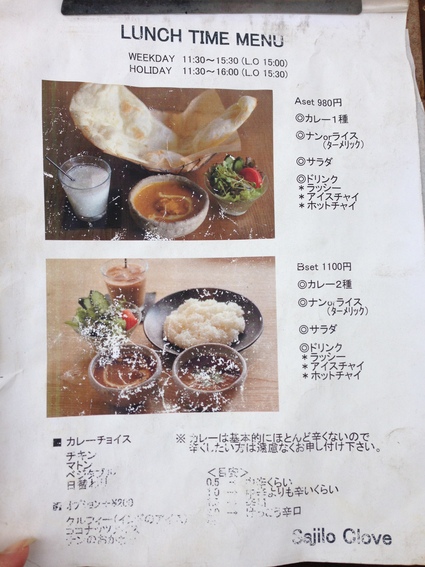 LUNCH TIME MENU
WEEKDAY 11:30～15:30 (L.O 15:00)
HOLIDAY 11:30～16:00 (L.O 15:30)
Aset 980円
◎カレー１種
◎ナンorライス
(ターメリック)
◎サラダ
◎ドリンク
＊ラッシー
＊アイスチャイ
＊ホットチャイ
Bset 1100円
◎カレー２種
◎ナンorライス
(ターメリック)
◎サラダ
◎ドリンク
＊ラッシー
＊アイスチャイ
＊ホットチャイ
■ カレーチョイス
チキン
マトン
日替わり
※ カレーは基本的にほとんど辛くないので
辛くしたい方は遠慮なくお申し付け下さい。
＜目安＞
0.5 → くらい
よりも辛いくらい
辛口
オプション +¥200
Sajilo Clove